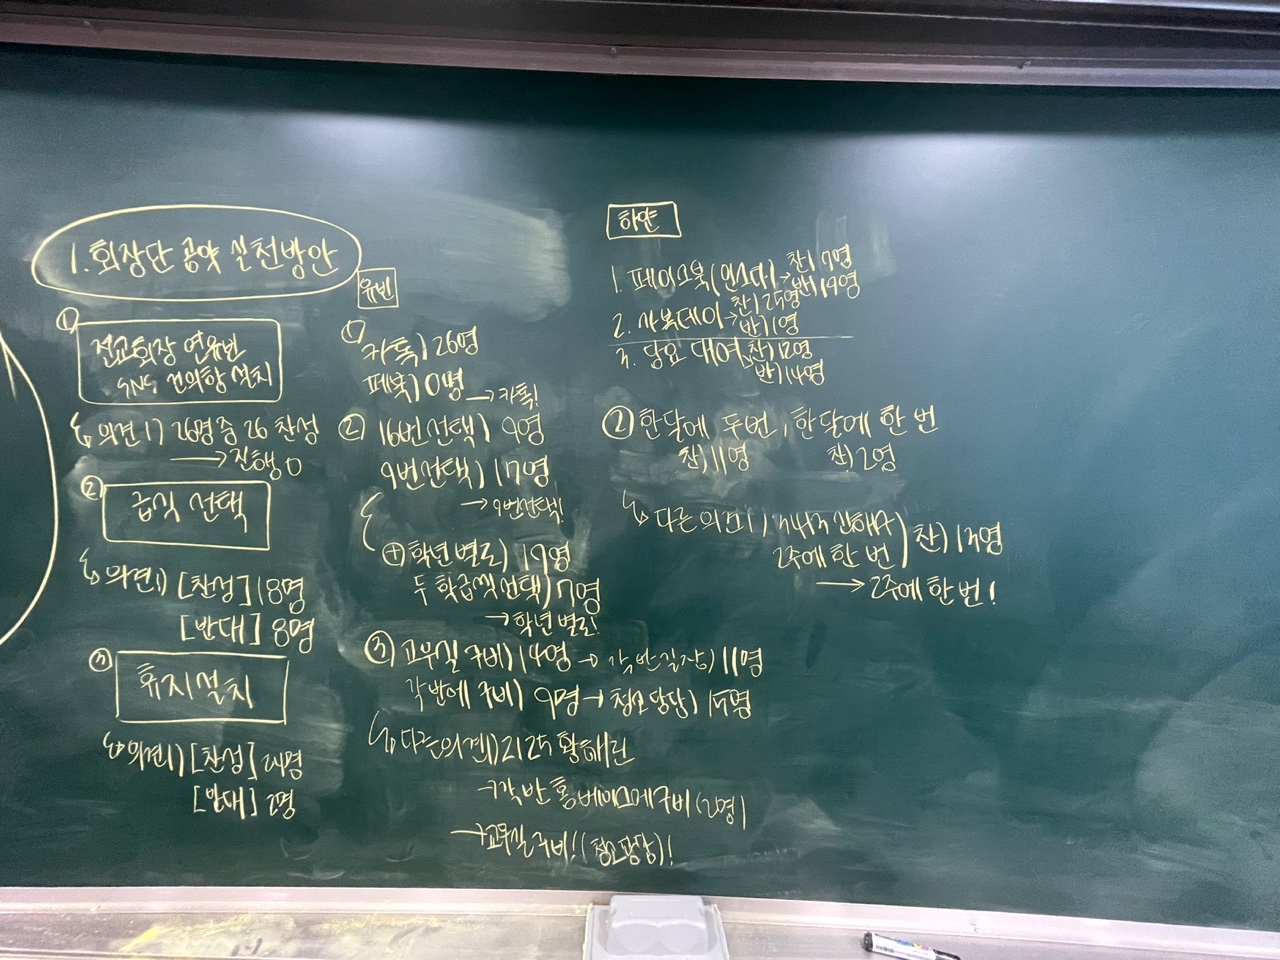 1. 회장단 공약 실천방안
① 전교회장 연유빈
SNS 건의함 설치
↳ 의견1) 26명 중 26 찬성
→ 진행 O
② 급식 선택
↳ 의견1) [찬성] 18명
[반대] 8명
③ 휴지 설치
↳ 의견1) [찬성] 24명
[반대] 2명
유빈
① 카톡) 26명
페북) 0명
→ 카톡!
② 16번 선택) 9명
9번 선택) 17명
→ 9번선택!
⊕ 학년별로) 19명
두 학급씩 선택) 7명
→ 학년별로!
③ 교무실 구비) 14명 → 각 반 실장) 11명
각반에 구비) 9명 → 청소담당) 15명
↳ 다른의견) 2125 황해린
→ 각 반 홈베이스에 구비 (2명)
→ 교무실 구비! (청소담당)!
하연
1. 페이스북(인스타) → 찬) 7명
반) 19명
2. 사복데이 → 찬) 25명
반) 1명
3. 담요 대여 → 찬) 12명
반) 14명
② 한달에 두번, 한달에 한 번
찬) 11명 찬) 2명
↳ 다른의견)
2주에 한 번) 찬) 13명
→ 2주에 한 번!